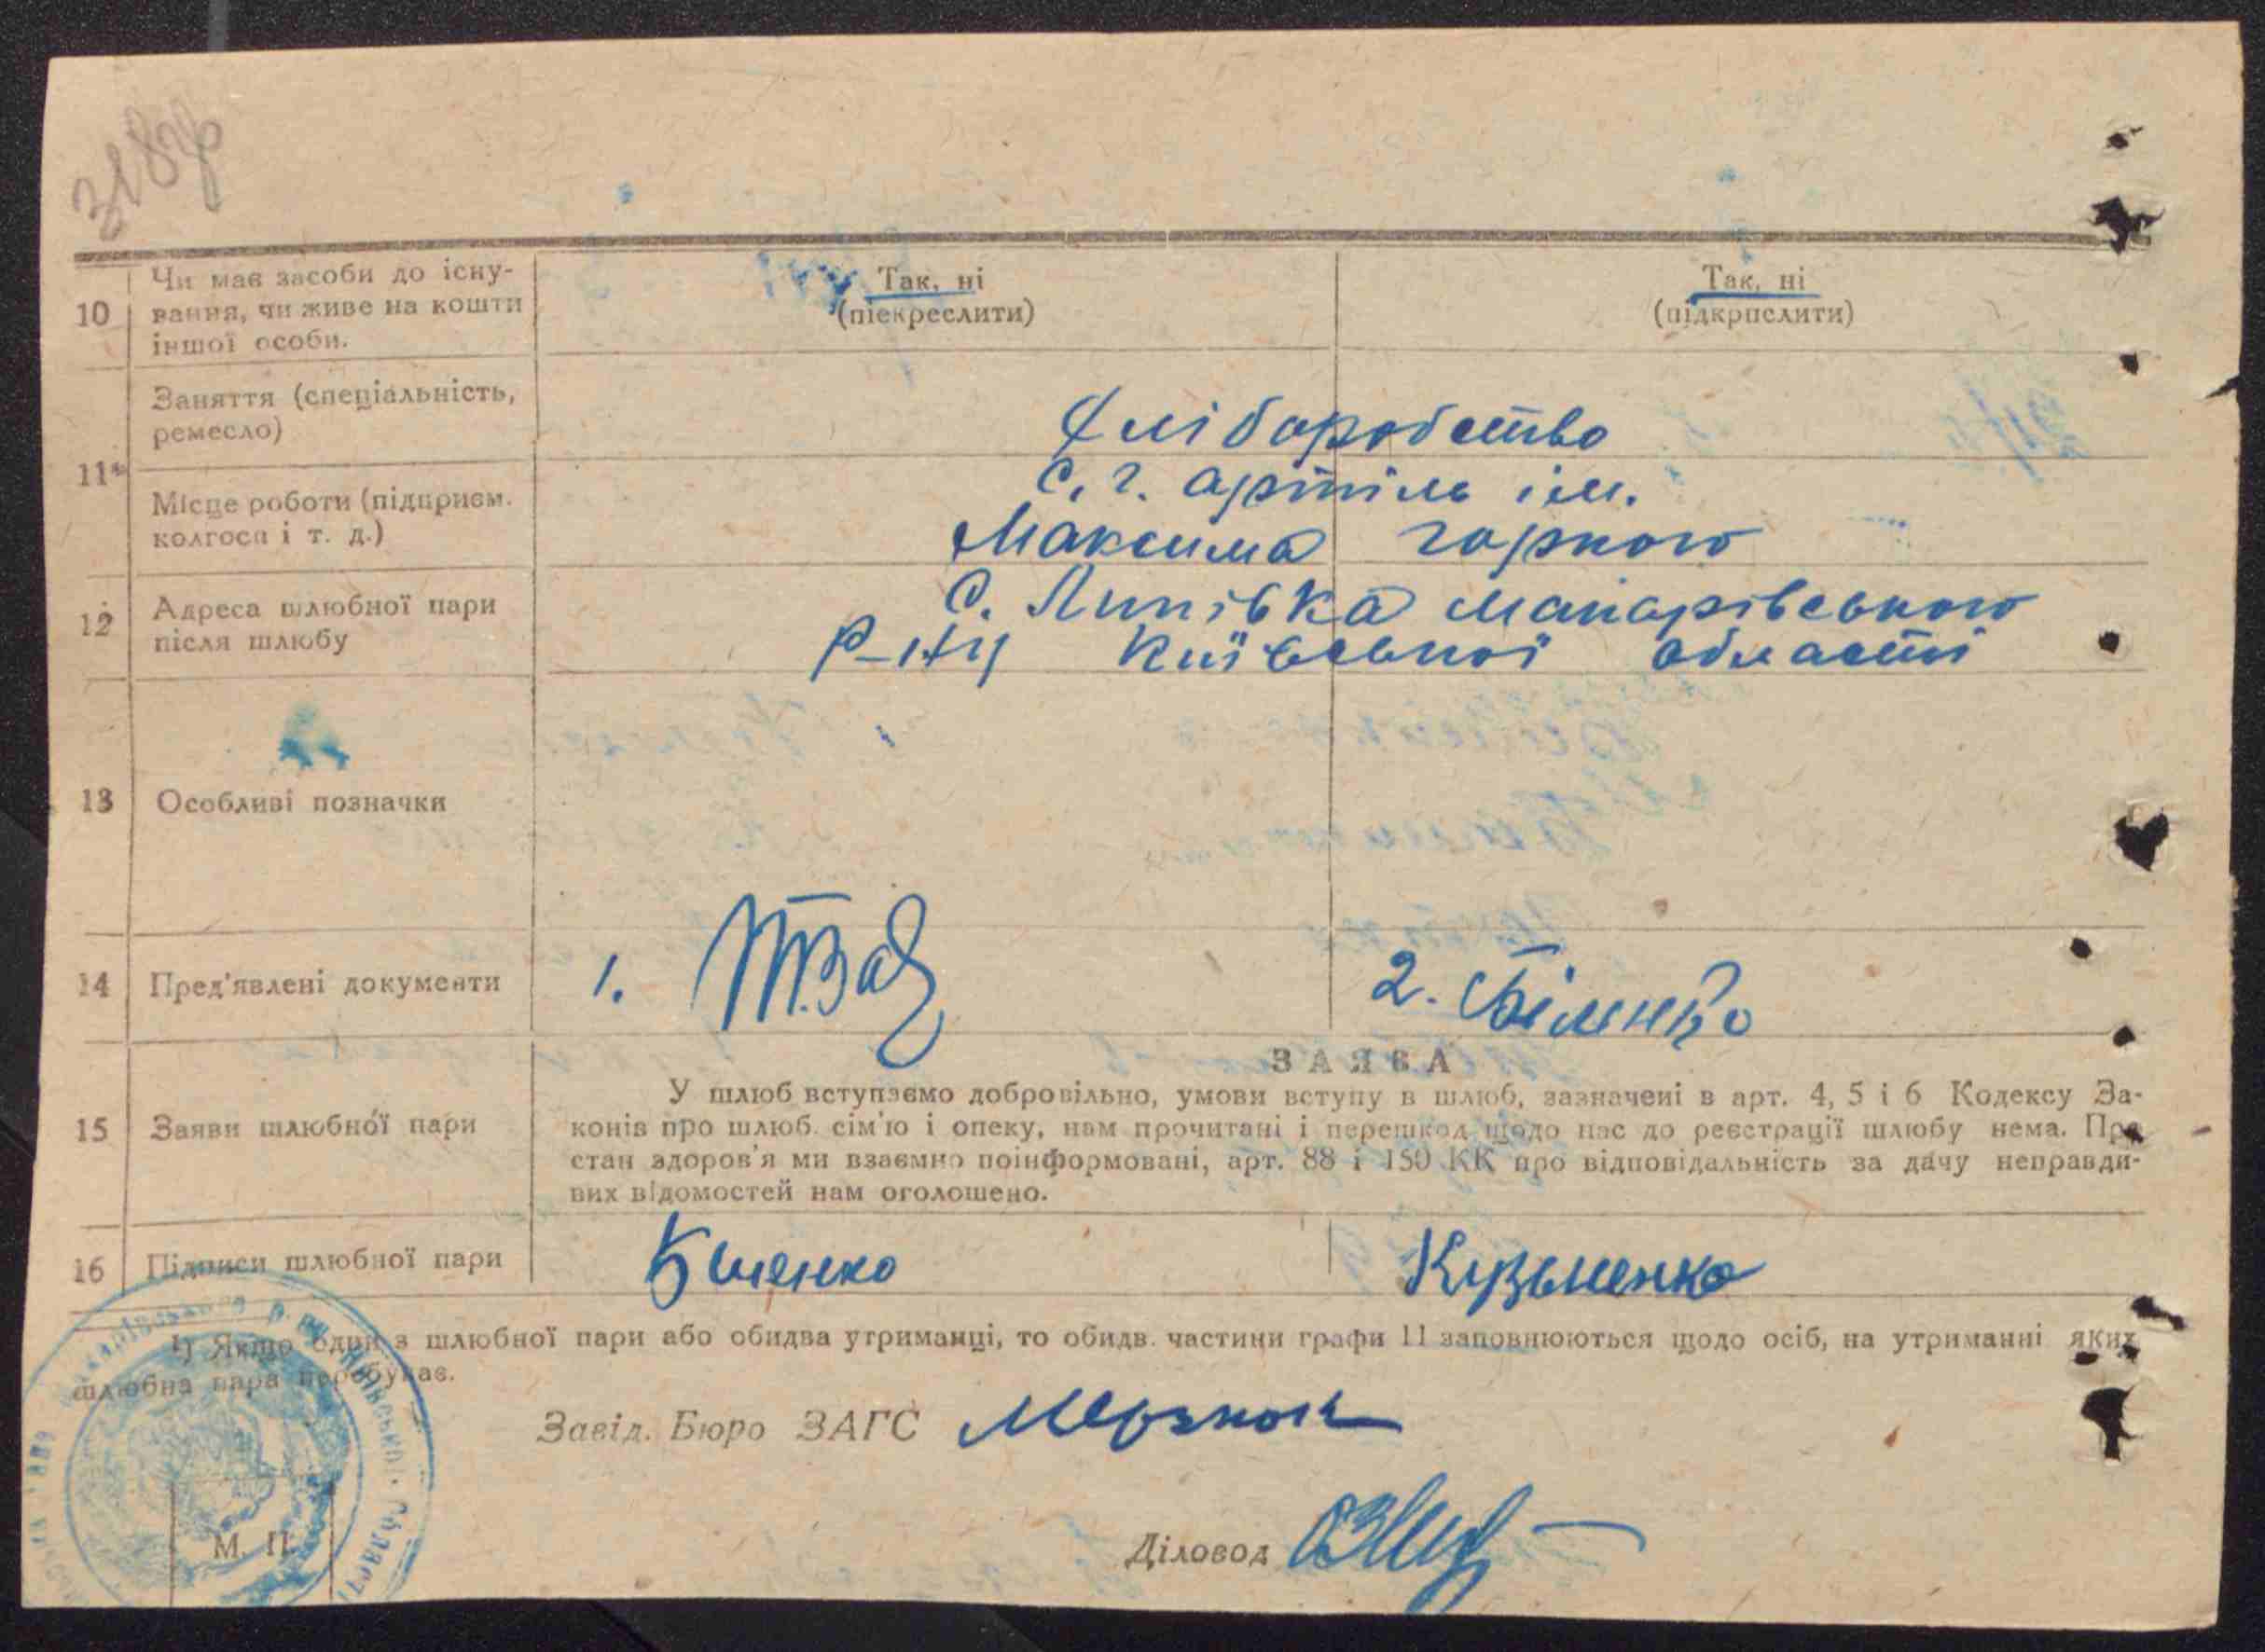 318
10 Чи має засоби до існу-
вання, чи живе на кошти
іншої особи.
Так, ні
(піекреслити)
Так, ні
(підкрпслити)
11
Заняття (спеціальність,
ремесло)
Хліборобство
Місце роботи (підприєм.
колгосп і т. д.)
С. г. артіль ім.
Максима горкого
12 Адреса шлюбної пари
після шлюбу
С. Липівка Макарівського
р-ну Київської області
13 Особливі позначки
14 Пред'явлені документи
1.
2.
ЗАЯВА
15 Заяви шлюбної пари
У шлюб вступаємо добровільно, умови вступу в шлюб, зазначені в арт. 4, 5 і 6 Кодексу За-
конів про шлюб. сім'ю і опеку, нам прочитані і перешкод щодо нас до реєстрації шлюбу нема. Про
стан здоров'я ми взаємно поінформовані, арт. 88 і 150 КК про відповідальність за дачу неправди-
вих відомостей нам оголошено.
16 Підписи шлюбної пари
Кузьменко
¹) Якщо один з шлюбної пари або обидва утриманці, то обидв. частини графи 11 заповнюються щодо осіб, на утриманні яких
шлюбна пара перебуває.
Завід. Бюро ЗАГС
Діловод
М. П.